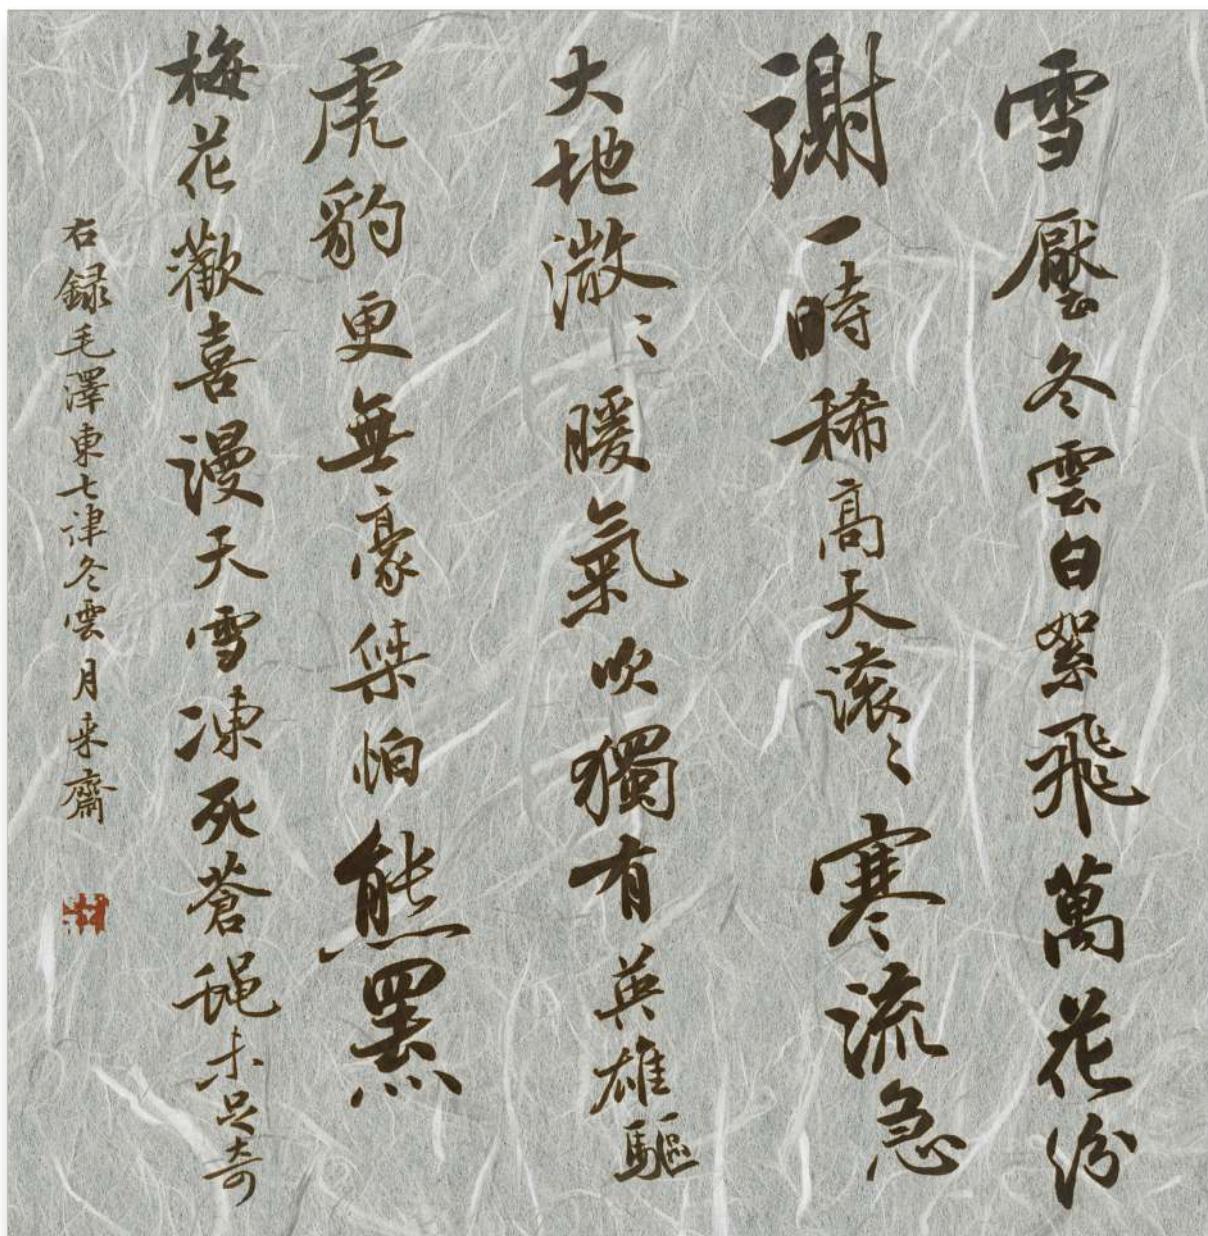 雪壓冬雲白絮飛萬花紛
謝一時稀高天滚〻寒流急
大地微〻暖氣吹獨有英雄驅
虎豹更無豪桀怕熊羆
梅花歡喜漫天雪凍死蒼蝇未足奇
右録毛澤東七律冬雲月来齋